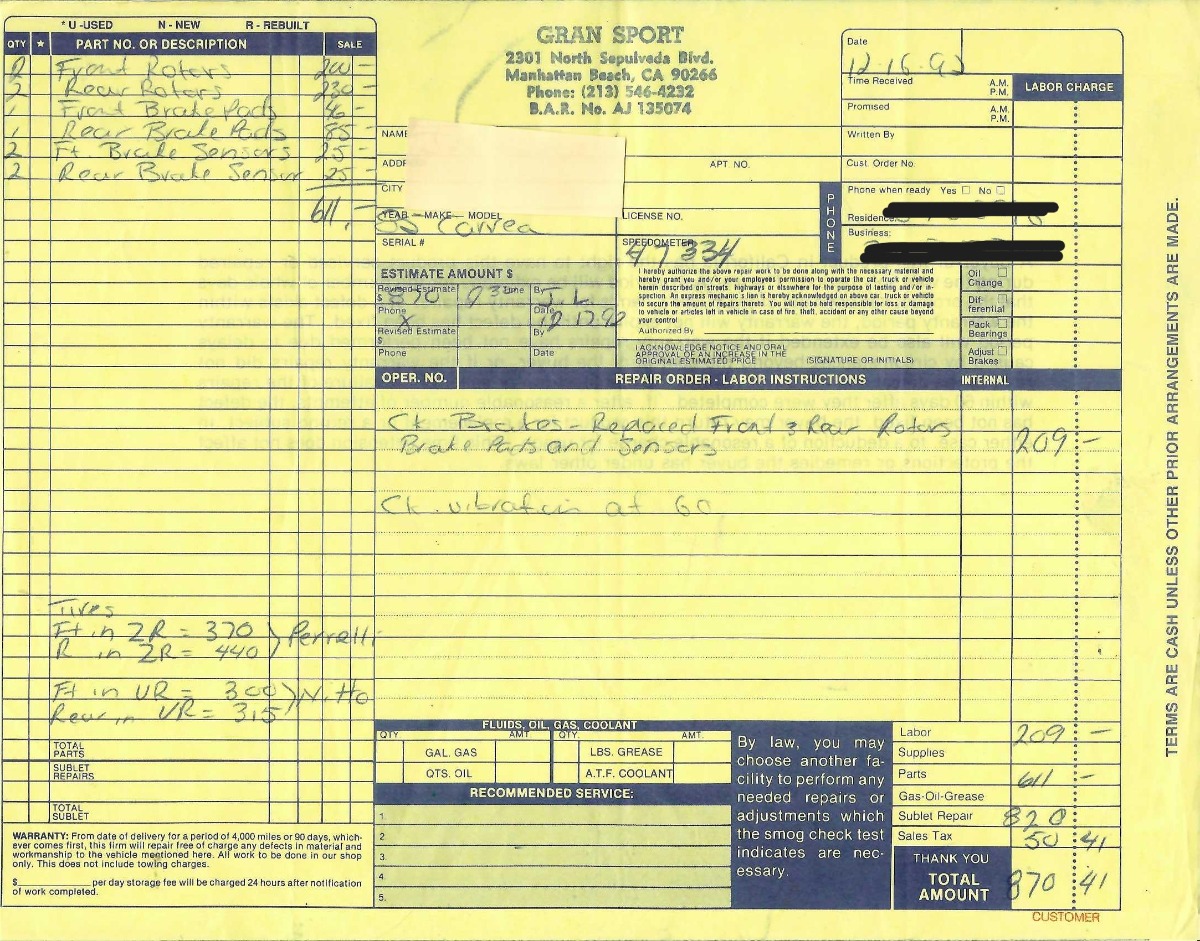 * U -USED N - NEW R - REBUILT
QTY ★ PART NO. OR DESCRIPTION SALE
2 Front Rotors 200 -
2 Rear Rotors 230 -
1 Front Brake Pads 46 -
1 Rear Brake Pads 85 -
2 Ft. Brake Sensors 25 -
2 Rear Brake Sensor 25 -
611, -
Tires
Ft in ZR = 370
R in ZR = 440 } Perrelli
Ft in VR = 300
Rear in VR = 315 } Nitto
TOTAL
PARTS
SUBLET
REPAIRS
TOTAL
SUBLET
WARRANTY: From date of delivery for a period of 4,000 miles or 90 days, which-
ever comes first, this firm will repair free of charge any defects in material and
workmanship to the vehicle mentioned here. All work to be done in our shop
only. This does not include towing charges.
$ per day storage fee will be charged 24 hours after notification
of work completed.
GRAN SPORT
2301 North Sepulveda Blvd.
Manhattan Beach, CA 90266
Phone: (213) 546-4232
B.A.R. No. AJ 135074
NAME
ADDR
APT NO.
CITY
YEAR - MAKE - MODEL
LICENSE NO.
Carrea
SERIAL #
SPEEDOMETER
47334
ESTIMATE AMOUNT $
Revised Estimate
$ 870
Time
By
J.L.
Phone
X
Date
12.17.92
Revised Estimate
$
By
Phone
Date
I hereby authorize the above repair work to be done along with the necessary material and
hereby grant you and/or your employees permission to operate the car, truck or vehicle
herein described on streets, highways or elsewhere for the purpose of testing and/or in-
spection. An express mechanic's lien is hereby acknowledged on above car, truck or vehicle
to secure the amount of repairs thereto. You will not be held responsible for loss or damage
to vehicle or articles left in vehicle in case of fire, theft, accident or any other cause beyond
your control
Authorized By
I ACKNOWLEDGE NOTICE AND ORAL
APPROVAL OF AN INCREASE IN THE
ORIGINAL ESTIMATED PRICE
(SIGNATURE OR INITIALS)
Date
12.16.92
Time Received
A.M.
P.M.
LABOR CHARGE
Promised
A.M.
P.M.
Written By
Cust. Order No.
PHONE
Phone when ready Yes No
Residence
Business:
Oil
Change
Dif-
ferential
Pack
Bearings
Adjust
Brakes
OPER. NO. REPAIR ORDER - LABOR INSTRUCTIONS INTERNAL
Ck Brakes - Replaced Front & Rear Rotors
Brake Pads and Sensors 209 -
Ck. vibration at 60
FLUIDS, OIL, GAS, COOLANT
QTY. AMT. QTY. AMT.
GAL. GAS LBS. GREASE
QTS. OIL A.T.F. COOLANT
RECOMMENDED SERVICE:
1.
2.
3.
4.
5.
By law, you may
choose another fa-
cility to perform any
needed repairs or
adjustments which
the smog check test
indicates are nec-
essary.
Labor 209 -
Supplies
Parts 611 -
Gas-Oil-Grease
Sublet Repair 820
Sales Tax 50 41
THANK YOU
TOTAL
AMOUNT 870 41
CUSTOMER
TERMS ARE CASH UNLESS OTHER PRIOR ARRANGEMENTS ARE MADE.